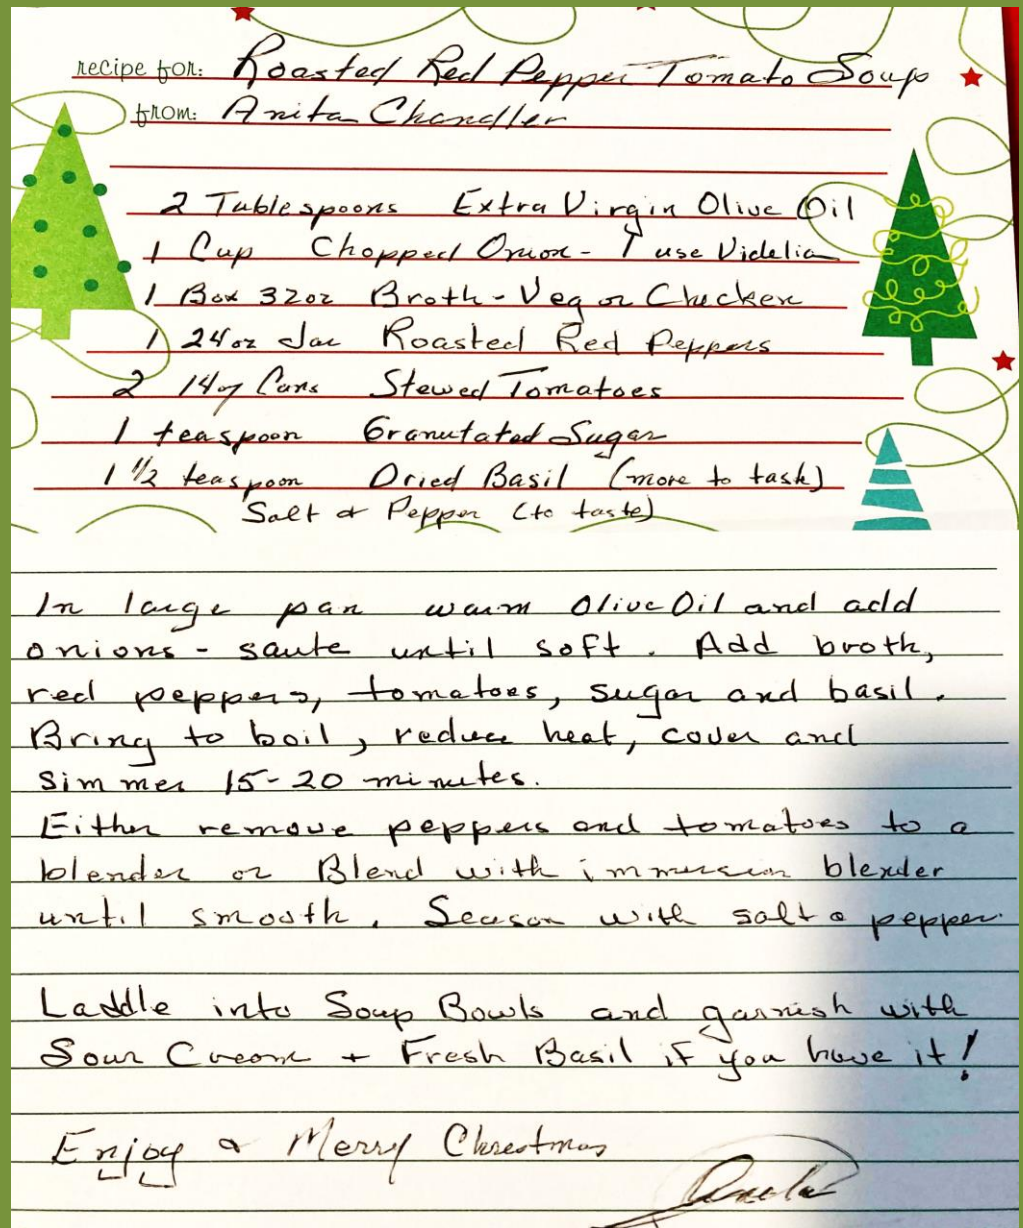 recipe for: Roasted Red Pepper Tomato Soup
from: Anita Chandler
2 Tablespoons Extra Virgin Olive Oil
1 Cup Chopped Onion - I use Videlia
1 Box 32oz Broth - Veg or Chicken
1 24oz Jar Roasted Red Peppers
2 14oz Cans Stewed Tomatoes
1 teaspoon Granutated Sugar
1 1/2 teaspoon Dried Basil (more to taste)
Salt & Pepper (to taste)
In large pan warm Olive Oil and add
onions - saute until soft. Add broth,
red peppers, tomatoes, sugar and basil.
Bring to boil, reduce heat, cover and
simmer 15-20 minutes.
Either remove peppers and tomatoes to a
blender or Blend with immersion blender
until smooth. Season with salt & pepper.
Laddle into Soup Bowls and garnish with
Sour Cream + Fresh Basil if you have it!
Enjoy & Merry Christmas